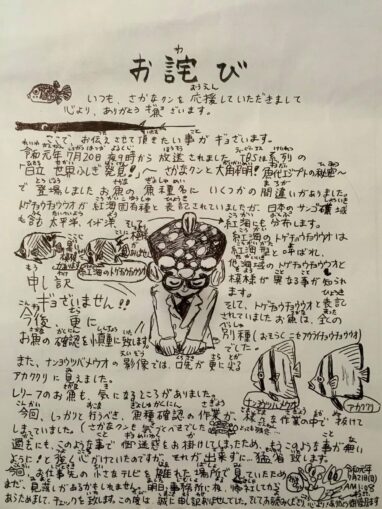 お詫び
いつも、さかなクンを応援していただきまして
心より、ありがとうギョざいます。
さて、お伝えさせて頂きたい事がギョざいます。
令和元年7月20日夜9時から放送されました、TBS系列の
"日立 世界ふしぎ発見!" さかなクンと大角明!古代エジプトの秘密〜
で登場しましたお魚の魚種名に いくつかの間違いがありました。
トゲチョウチョウウオが紅海固有種と表記されていましたが、日本のサンゴ礁域
も含む太平洋、インド洋
紅海にも分布します。
紅海のトゲチョウチョウウオは
紅海型と呼ばれ、
他海域のトゲチョウチョウウオと
模様が異なる事が知られ
ます。
紅海のトゲチョウチョウウオ
そして、トゲチョウチョウウオと表記
されていましたお魚は、全くの
別種(おそらくニセアウチョウチョウウオ)
でした。
申し訳
ギョざいません!!
今後、更に
お魚の確認を慎重に致します。
また、ナンヨウツバメウオの映像では、口先が更に尖る
アカククリに見えました。
ナンヨウツバメウオ
アカククリ
レリーフのお魚も、気になるところがありました。
今回、しっかりと行うべき、魚種確認の作業が、様々な作業の中で抜けて
しまっていました
過去にも、このような事で御迷惑をお掛けしてしまったため、もうこのような事が無い
ように!と強く心がけていたのですが、それが出来ずに…猛省致します。
今回、お仕事先の小さなテレビを離れた場所で見ていたため
まだ、見落しがあるかもしれません。明日、事務所に
あらためまして、チェックを致します。この度は 誠に申し訳ありませんでした。
令和元年
7月21日(日)
AM1:48